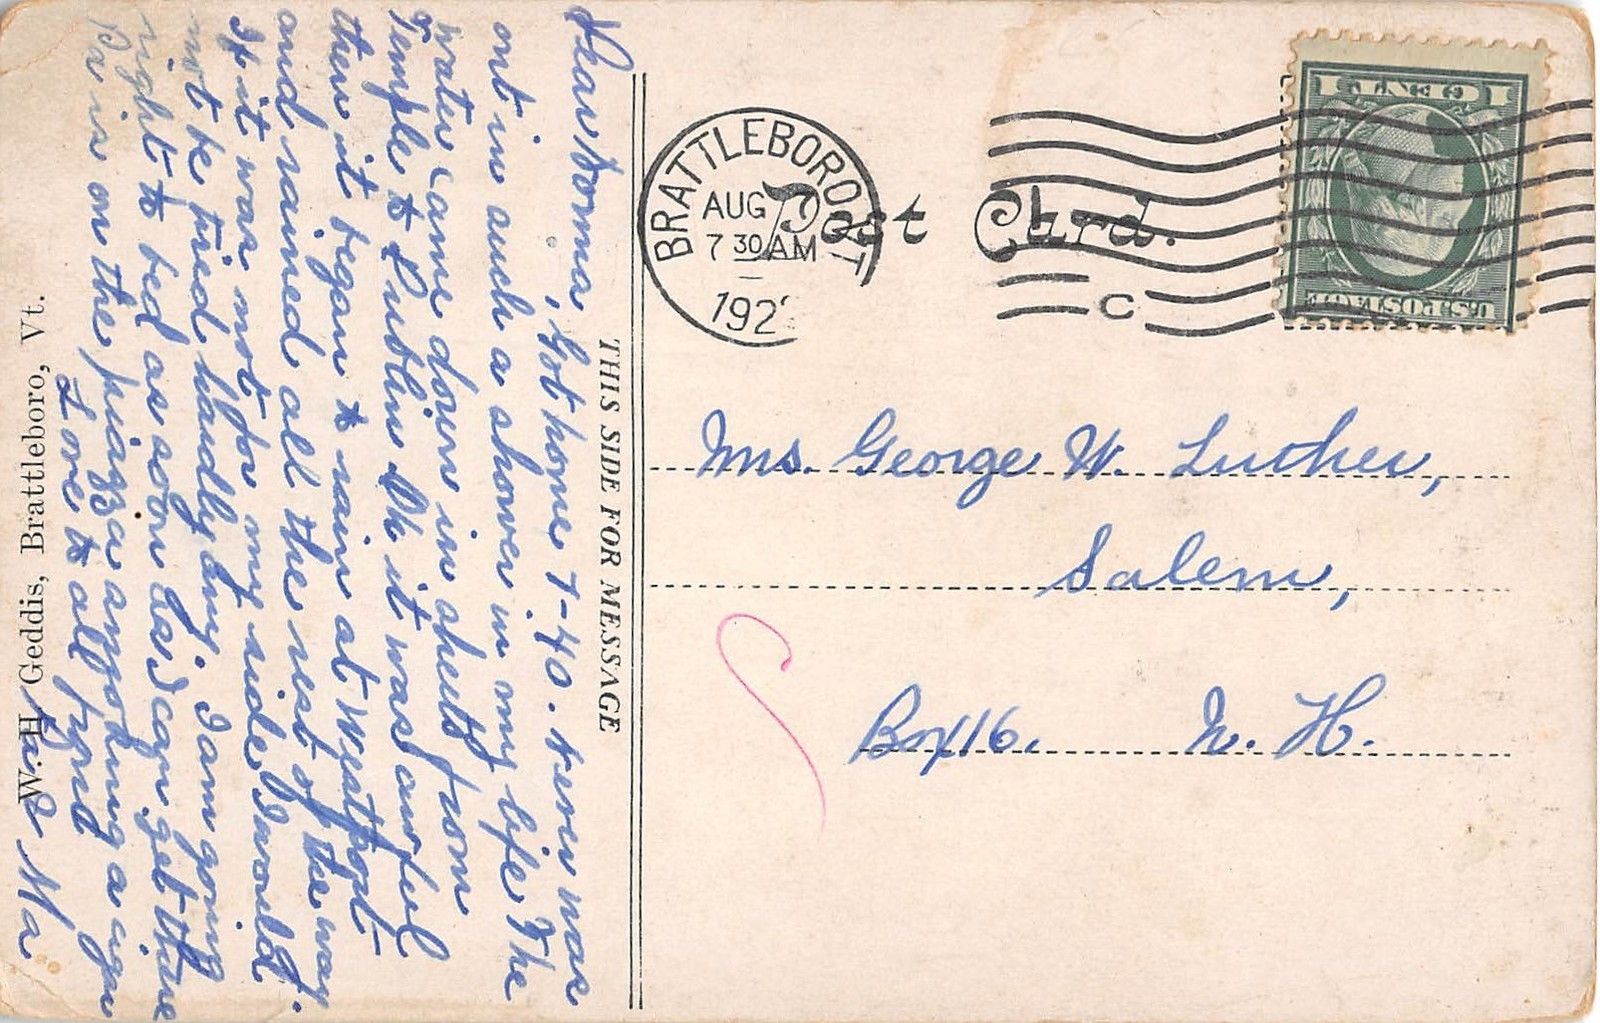 Dear Norma, Got home 7-40. Never was
out in such a shower in my life The
water came down in sheets from
Temple to Dublin Oh it was awful
then it began to rain at Westport
and rained all the rest of the way.
If it was not for my side I would
not be tired hardly any. I am going
right to bed as soon as I can get there
Pa is on the piazza smoking a cigar
Love to all from
Pa & Ma
W. H Geddis, Brattleboro, Vt.
THIS SIDE FOR MESSAGE
BRATTLEBORO VT
AUG
7 30 AM
192
Post Card.
C
1 CENT 1
U.S. POSTAGE
Mrs. George W. Luther,
Salem,
Box 116. N. H.